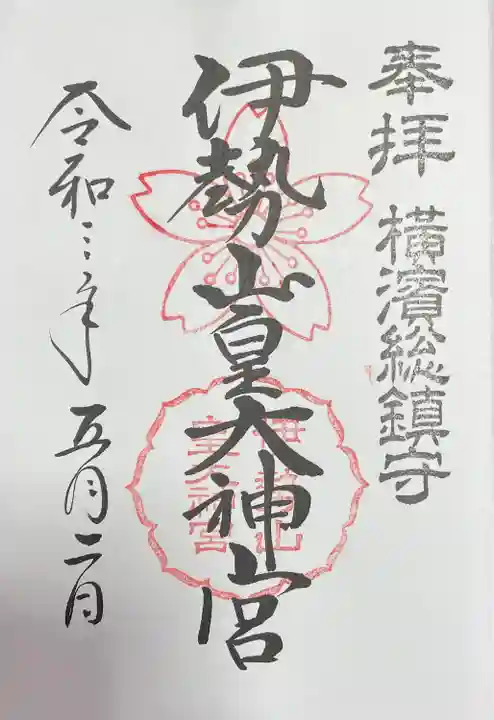 奉拝 横濱総鎮守
伊勢山皇大神宮
伊勢山
皇大神宮
令和三年 五月二日